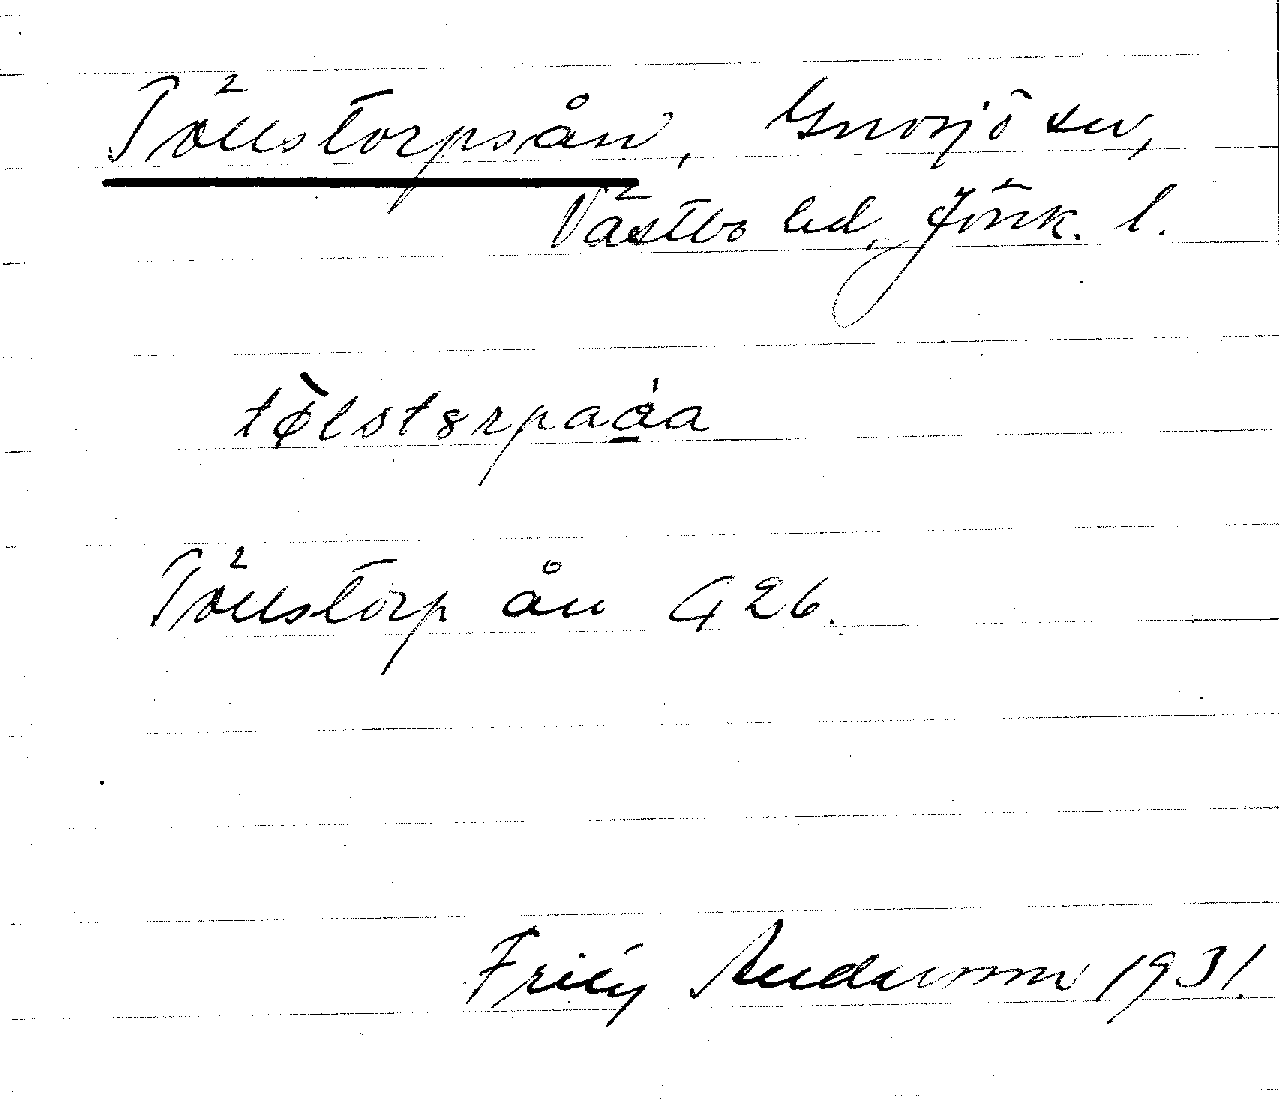 Töllstorpsån, Gnosjö sn,
Västbo hd, Jönk. l.
tø̀lstɤrpaåa
Töllstorp ån G 26.
Andersson 1931.